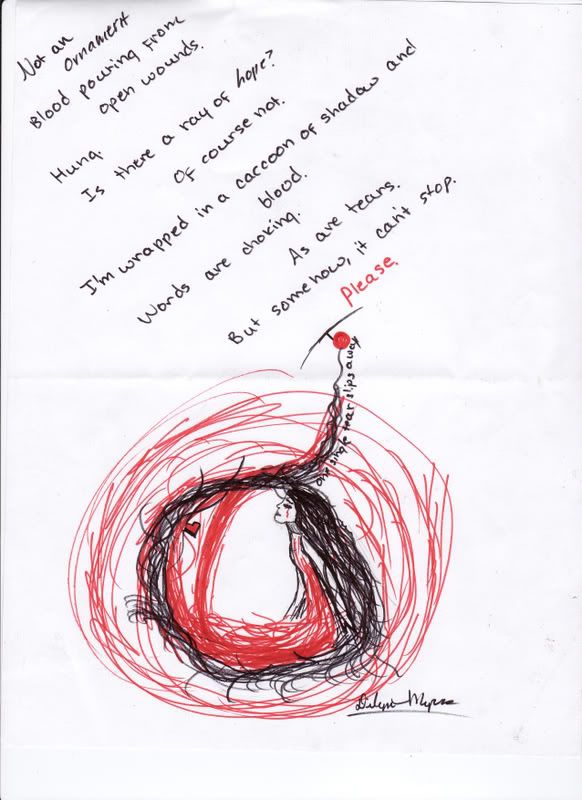 Not an
ornament
Blood pouring from
open wounds.
Hung.
Is there a ray of hope?
Of course not.
I'm wrapped in a caccoon of shadow and
blood.
Words are choking.
As are tears.
But somehow, it can't stop.
Please.
single tear slips away